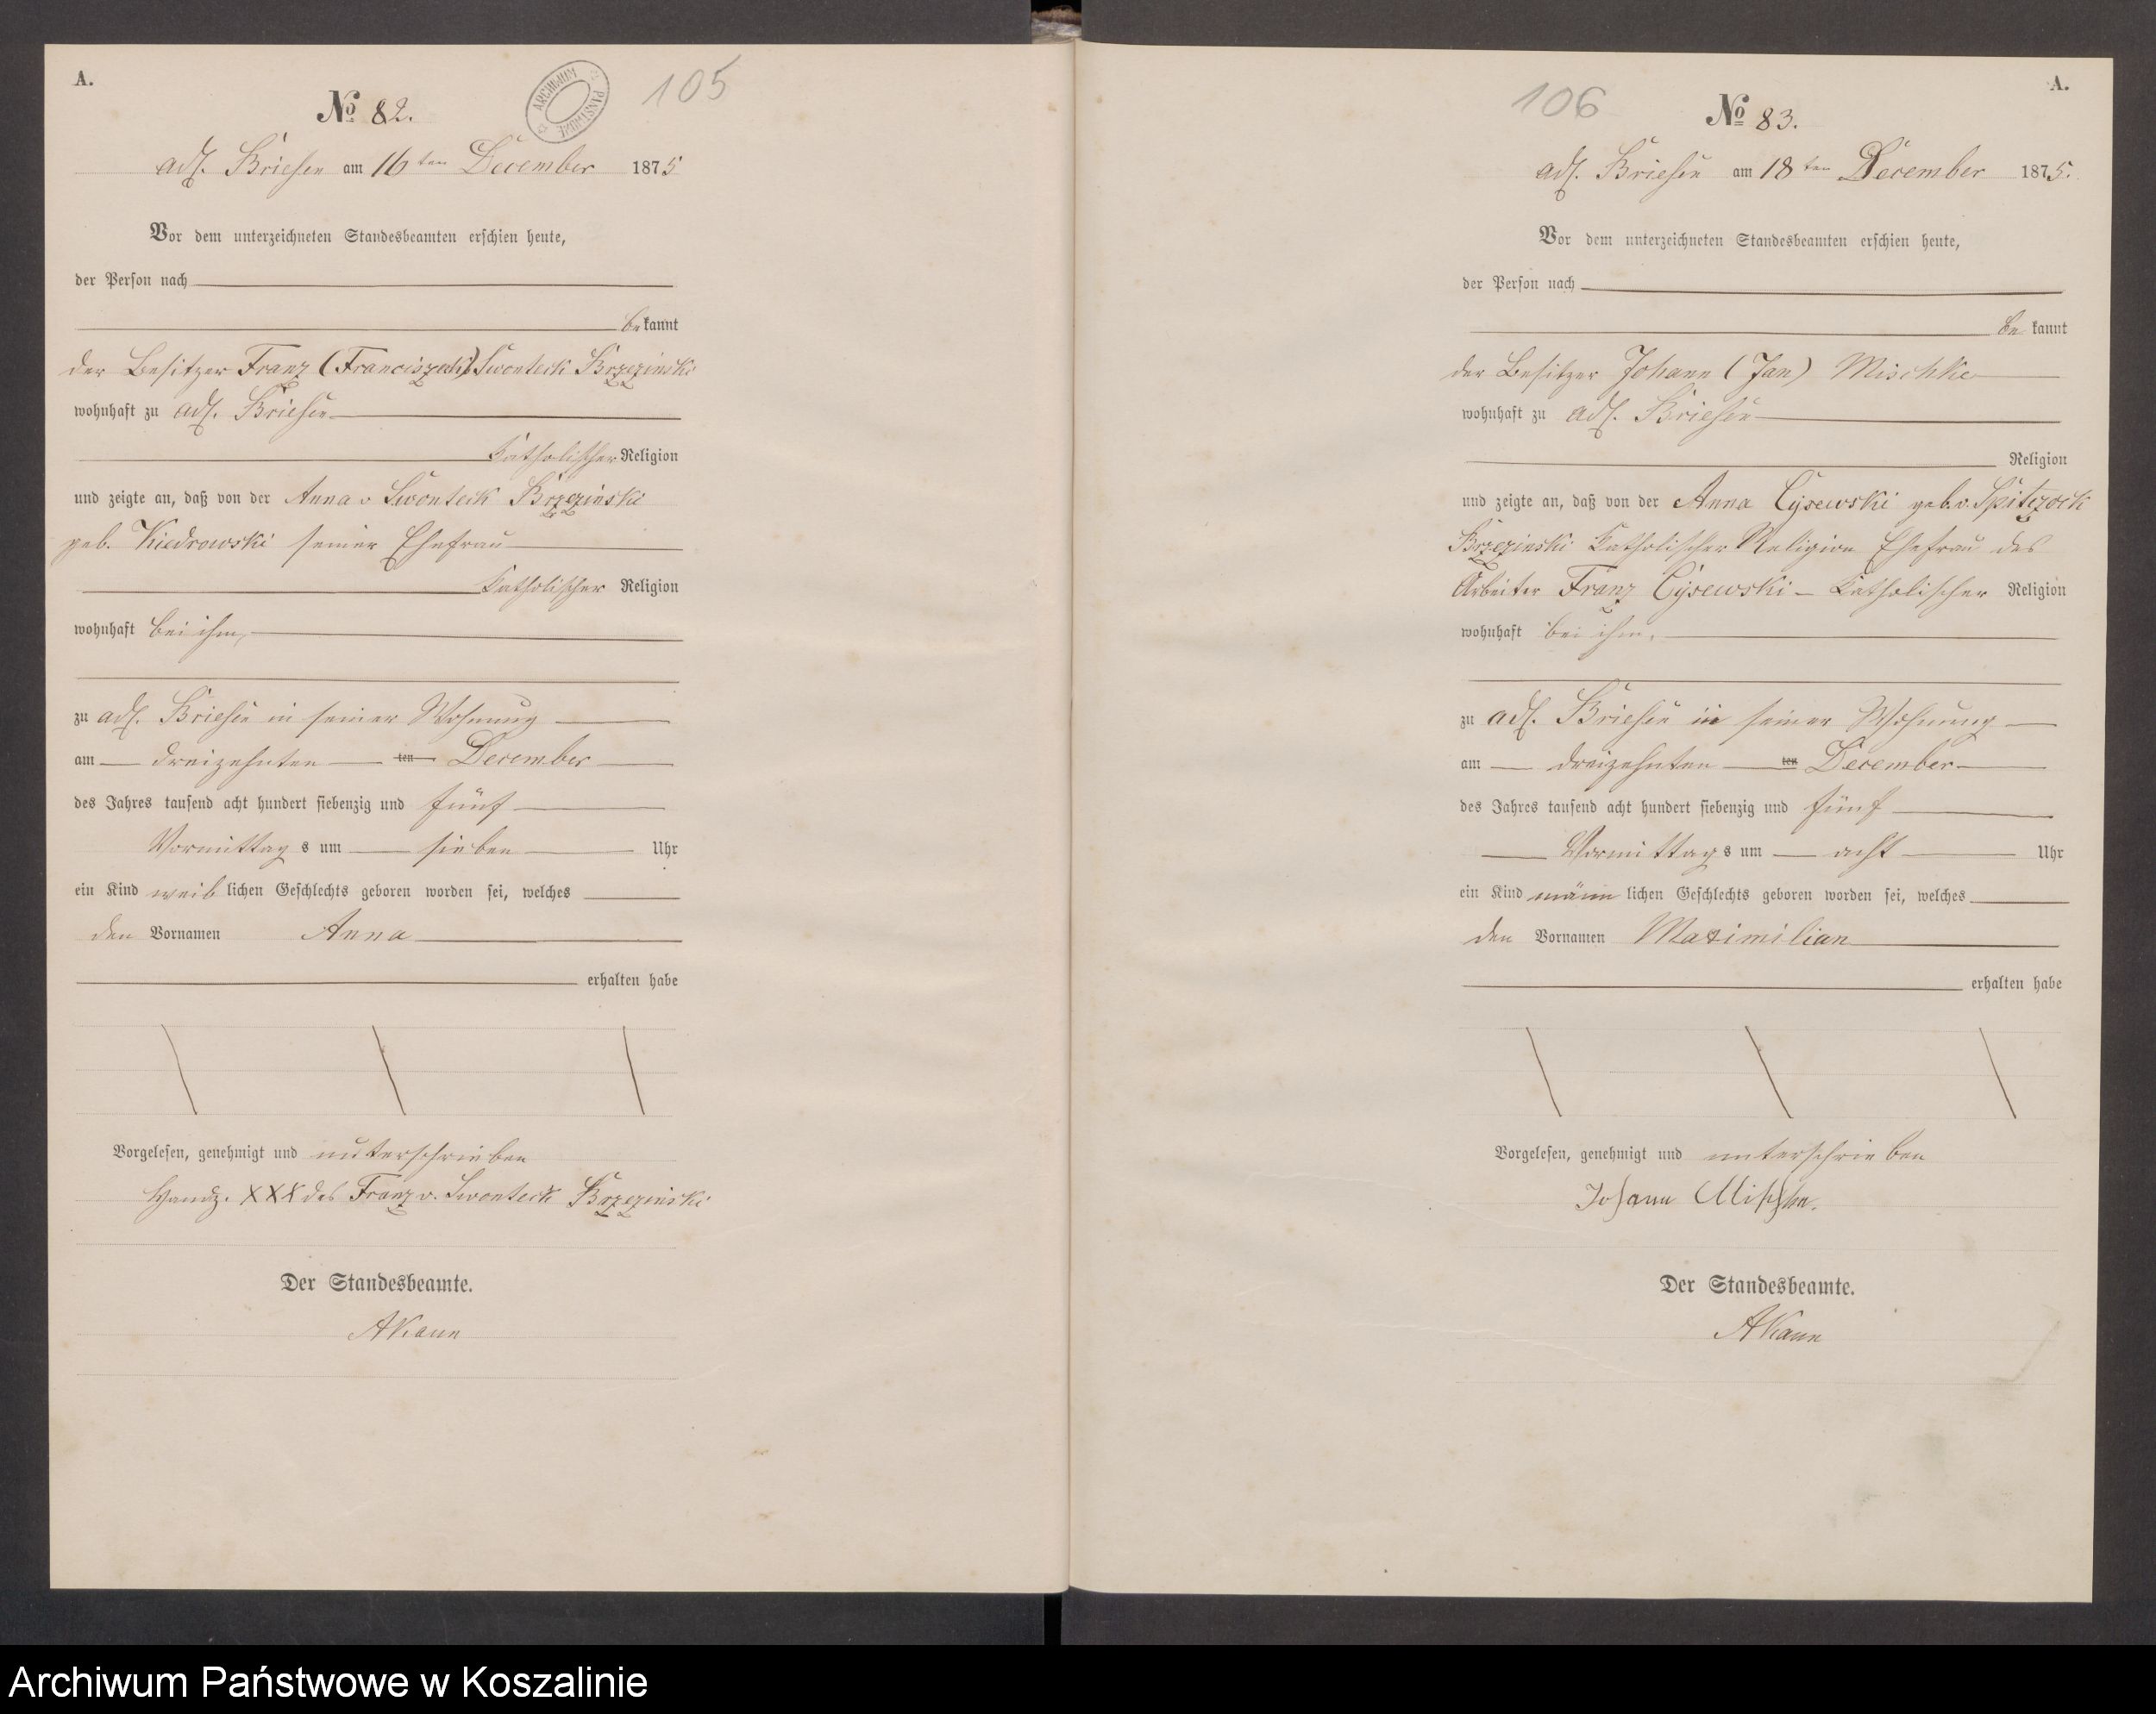 A.
№ 82.
ARCHIWUM PAŃSTWOWE
105
adl. Briesen am 16ten December 1875
Vor dem unterzeichneten Standesbeamten erschien heute,
der Person nach
bekannt
der Besitzer Franz (Franciszek) v. Swonteck Brzezinski
wohnhaft zu adl. Briesen
Katholischer Religion
und zeigte an, daß von der Anna v Swonteck Brzezinski
geb. Kiedrowski seiner Ehefrau
Katholischer Religion
wohnhaft bei ihm,
zu adl. Briesen in seiner Wohnung
am dreizehnten ten December
des Jahres tausend acht hundert siebenzig und fünf
Vormittags um sieben Uhr
ein Kind weiblichen Geschlechts geboren worden sei, welches
den Vornamen Anna
erhalten habe
Vorgelesen, genehmigt und unterschrieben
Handz. XXX des Franz v. Swonteck Brzezinski
Der Standesbeamte.
AKaun
106
№ 83.
A.
adl. Briesen am 18ten December 1875.
Vor dem unterzeichneten Standesbeamten erschien heute,
der Person nach
bekannt
der Besitzer Johann (Jan) Mischke
wohnhaft zu adl. Briesen
Religion
und zeigte an, daß von der Anna Cysewski geb. v. Spitczock
Brzezinski Katholischer Religion Ehefrau des
Arbeiter Franz Cysewski – Katholischer Religion
wohnhaft bei ihm,
zu adl. Briesen in seiner Wohnung
am dreizehnten ten December
des Jahres tausend acht hundert siebenzig und fünf
Vormittags um acht Uhr
ein Kind männlichen Geschlechts geboren worden sei, welches
den Vornamen Maximilian
erhalten habe
Vorgelesen, genehmigt und unterschrieben
Johann Mischke.
Der Standesbeamte.
AKaun
Archiwum Państwowe w Koszalinie